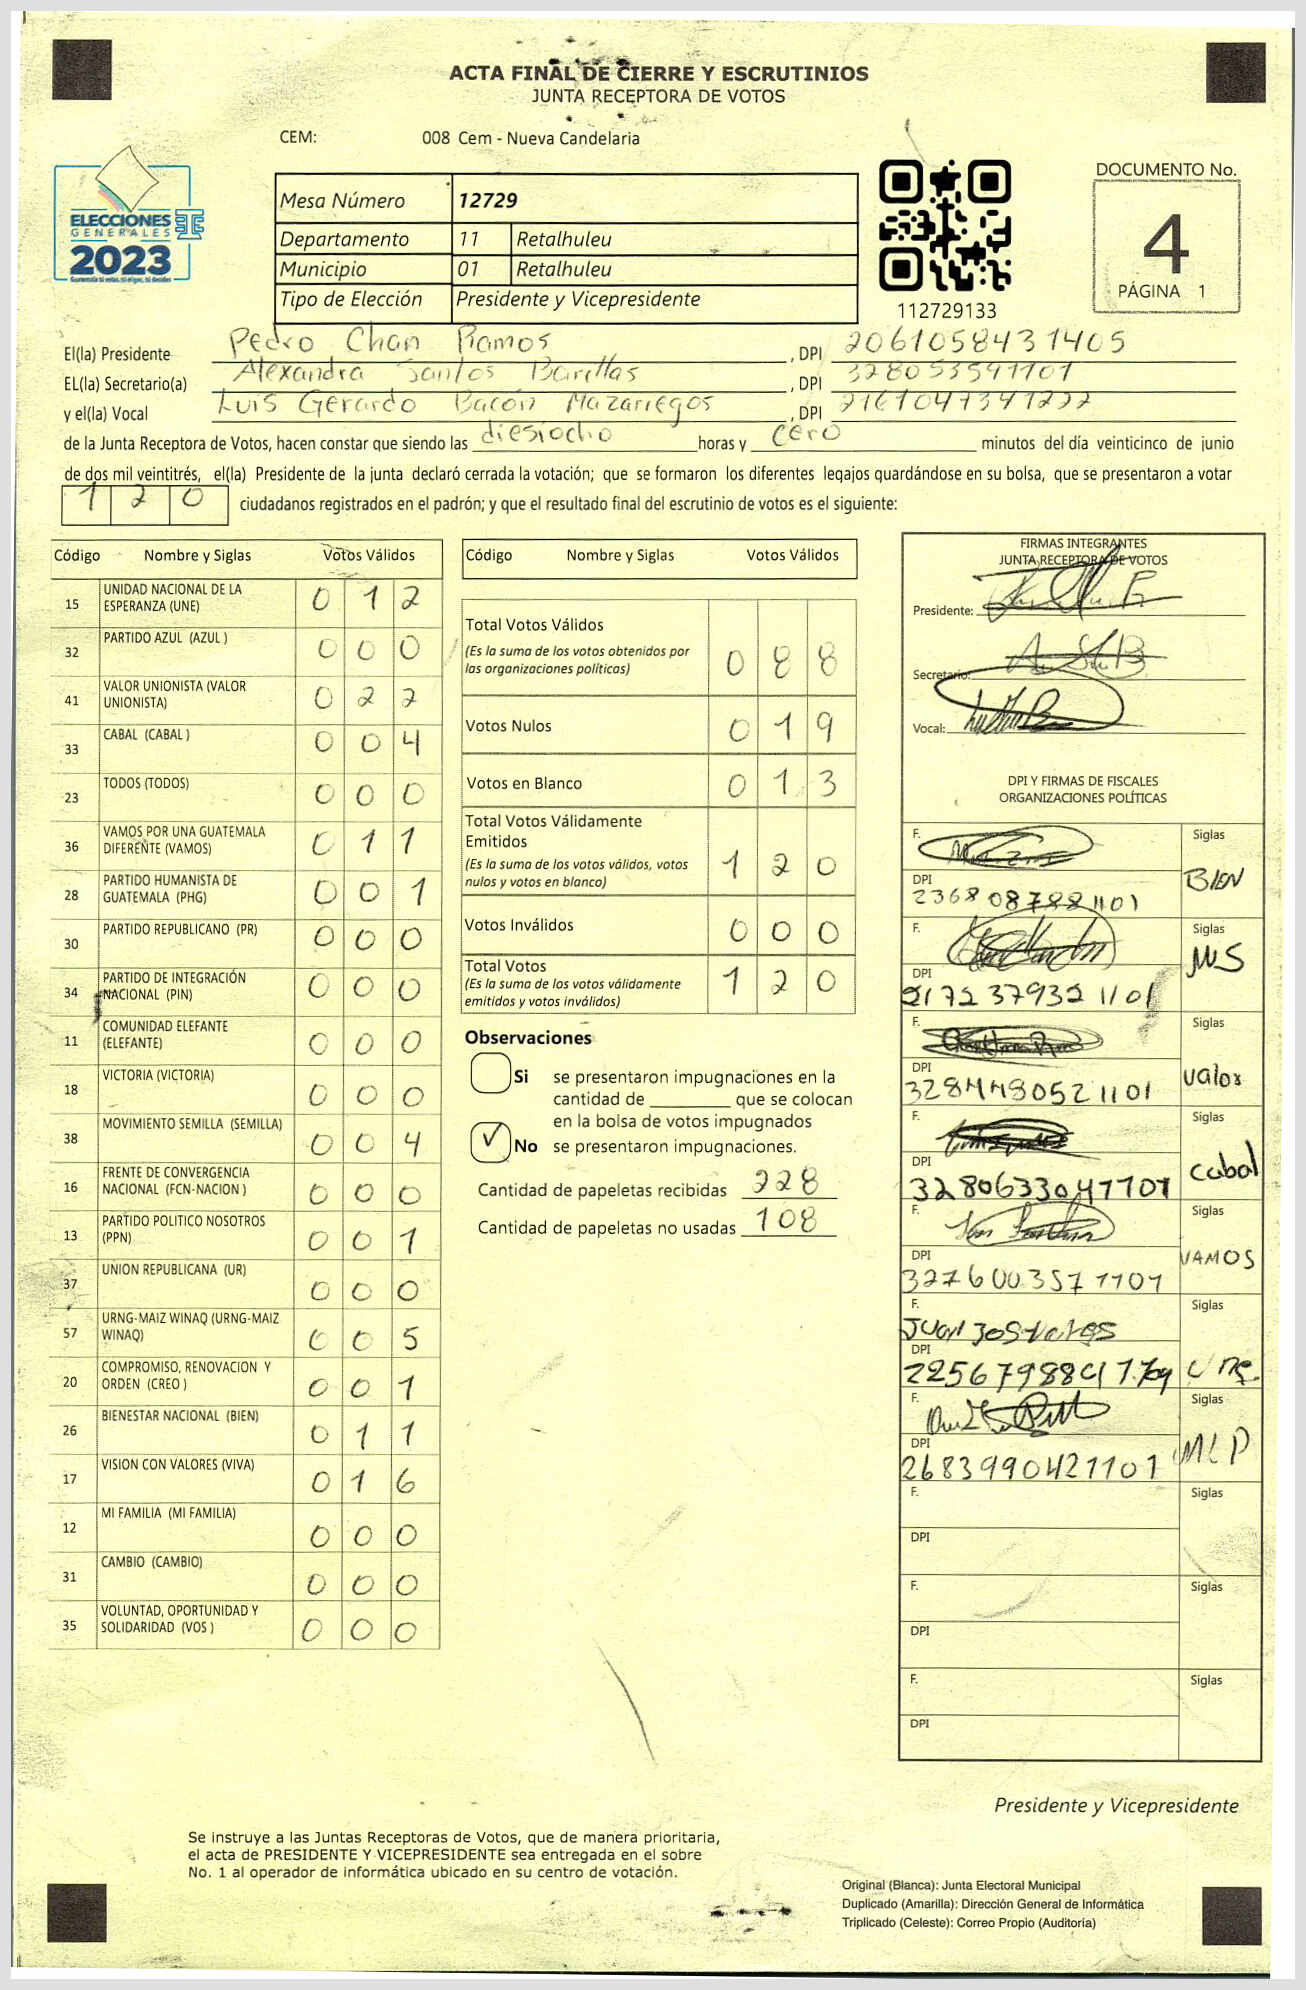 ACTA FINAL DE CIERRE Y ESCRUTINIOS
JUNTA RECEPTORA DE VOTOS
CEM: 008 Cem - Nueva Candelaria
ELECCIONES
GENERALES
2023
Mesa Número 12729
Departamento 11 Retalhuleu
Municipio 01 Retalhuleu
Tipo de Elección Presidente y Vicepresidente
112729133
DOCUMENTO No.
4
PÁGINA 1
El(la) Presidente Pedro Chan Ramos, DPI 2061058431405
EL(la) Secretario(a) Alexandra Santos Barillas, DPI 3280535941101
y el(la) Vocal Luis Gerardo Bacón Mazariegos, DPI 2161047341222
de la Junta Receptora de Votos, hacen constar que siendo las diesiocho horas y cero minutos del día veinticinco de junio
de dos mil veintitrés, el(la) Presidente de la junta declaró cerrada la votación; que se formaron los diferentes legajos quardándose en su bolsa, que se presentaron a votar
120 ciudadanos registrados en el padrón; y que el resultado final del escrutinio de votos es el siguiente:
Código Nombre y Siglas Votos Válidos
15 UNIDAD NACIONAL DE LA ESPERANZA (UNE) 0 1 2
32 PARTIDO AZUL (AZUL ) 0 0 0
41 VALOR UNIONISTA (VALOR UNIONISTA) 0 2 2
33 CABAL (CABAL ) 0 0 4
23 TODOS (TODOS) 0 0 0
36 VAMOS POR UNA GUATEMALA DIFERENTE (VAMOS) 0 1 1
28 PARTIDO HUMANISTA DE GUATEMALA (PHG) 0 0 1
30 PARTIDO REPUBLICANO (PR) 0 0 0
34 PARTIDO DE INTEGRACIÓN NACIONAL (PIN) 0 0 0
11 COMUNIDAD ELEFANTE (ELEFANTE) 0 0 0
18 VICTORIA (VICTORIA) 0 0 0
38 MOVIMIENTO SEMILLA (SEMILLA) 0 0 4
16 FRENTE DE CONVERGENCIA NACIONAL (FCN-NACION ) 0 0 0
13 PARTIDO POLITICO NOSOTROS (PPN) 0 0 1
37 UNION REPUBLICANA (UR) 0 0 0
57 URNG-MAIZ WINAQ (URNG-MAIZ WINAQ) 0 0 5
20 COMPROMISO, RENOVACION Y ORDEN (CREO ) 0 0 1
26 BIENESTAR NACIONAL (BIEN) 0 1 1
17 VISION CON VALORES (VIVA) 0 1 6
12 MI FAMILIA (MI FAMILIA) 0 0 0
31 CAMBIO (CAMBIO) 0 0 0
35 VOLUNTAD, OPORTUNIDAD Y SOLIDARIDAD (VOS ) 0 0 0
Código Nombre y Siglas Votos Válidos
Total Votos Válidos 0 8 8
(Es la suma de los votos obtenidos por
las organizaciones políticas)
Votos Nulos 0 1 9
Votos en Blanco 0 1 3
Total Votos Válidamente
Emitidos 1 2 0
(Es la suma de los votos válidos, votos
nulos y votos en blanco)
Votos Inválidos 0 0 0
Total Votos 1 2 0
(Es la suma de los votos válidamente
emitidos y votos inválidos)
Observaciones
Si se presentaron impugnaciones en la
cantidad de ________ que se colocan
en la bolsa de votos impugnados
✓ No se presentaron impugnaciones.
Cantidad de papeletas recibidas 228
Cantidad de papeletas no usadas 108
FIRMAS INTEGRANTES
JUNTA RECEPTORA DE VOTOS
Presidente:
Secretario:
Vocal:
DPI Y FIRMAS DE FISCALES
ORGANIZACIONES POLÍTICAS
F. Siglas
DPI BIEN
2368087881101
F. Siglas
DPI MLS
2172379321101
F. Siglas
DPI Valor
3284480521101
F. Siglas
DPI cabal
3280633041101
F. Siglas
DPI VAMOS
3276003571101
F. Siglas
Juan Jos
DPI une
F. Siglas
DPI MLP
2683990421101
F. Siglas
DPI
F. Siglas
DPI
F. Siglas
DPI
Presidente y Vicepresidente
Se instruye a las Juntas Receptoras de Votos, que de manera prioritaria,
el acta de PRESIDENTE Y VICEPRESIDENTE sea entregada en el sobre
No. 1 al operador de informática ubicado en su centro de votación.
Original (Blanca): Junta Electoral Municipal
Duplicado (Amarilla): Dirección General de Informática
Triplicado (Celeste): Correo Propio (Auditoría)